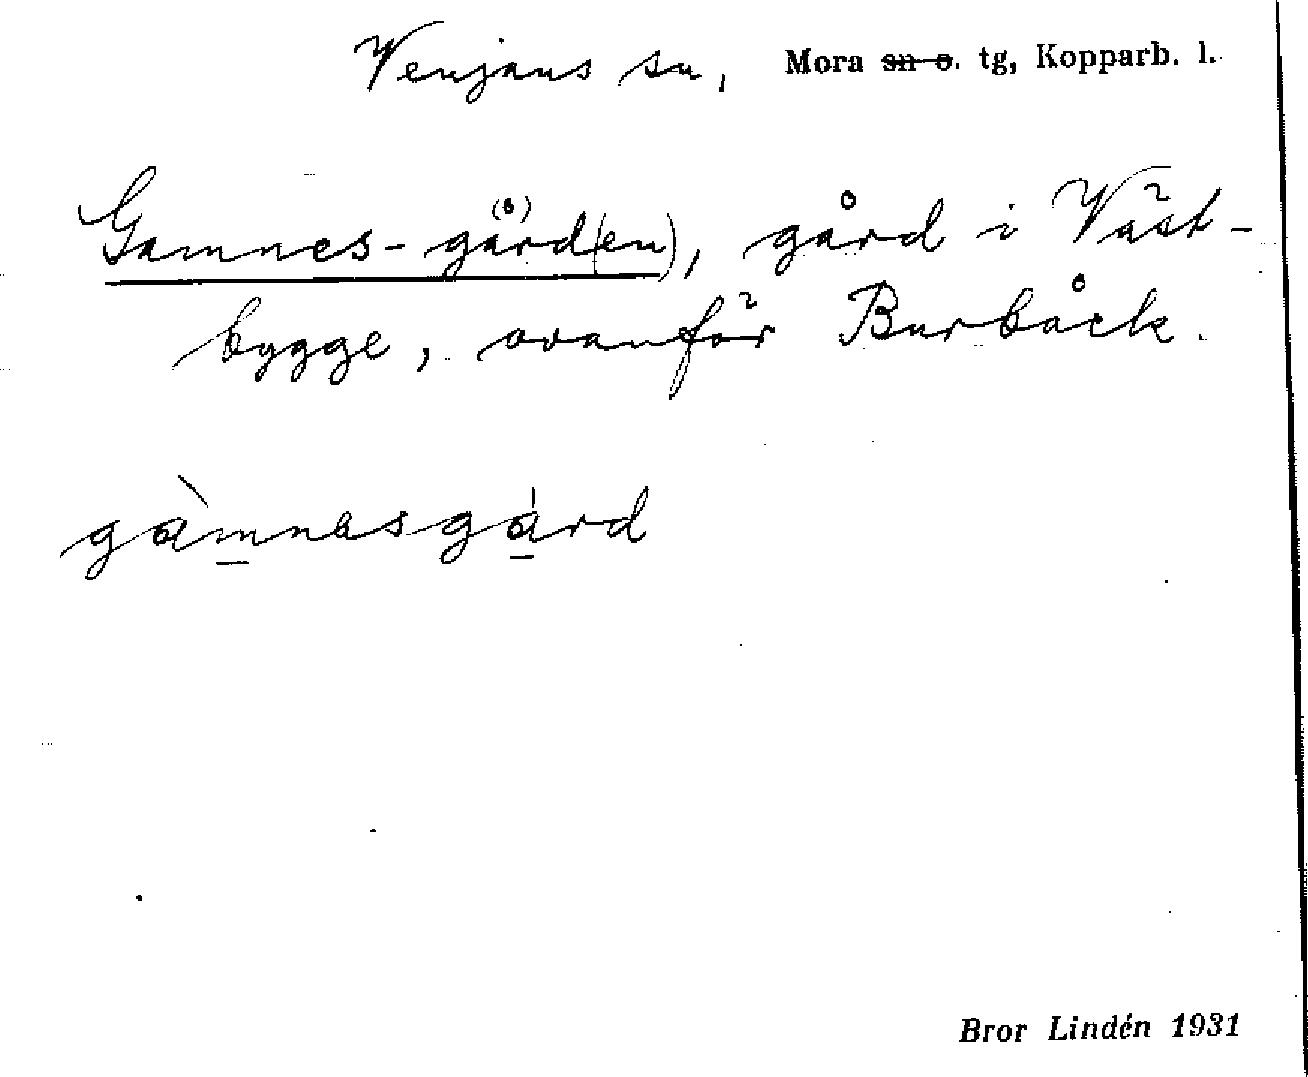 Venjans sn, Mora sn o. tg, Kopparb. l.
Gamnes-g(å)rd(en), gård i Väst-
bygge, ovanför Burbäck.
gàmnəsgárd
Bror Lindén 1931